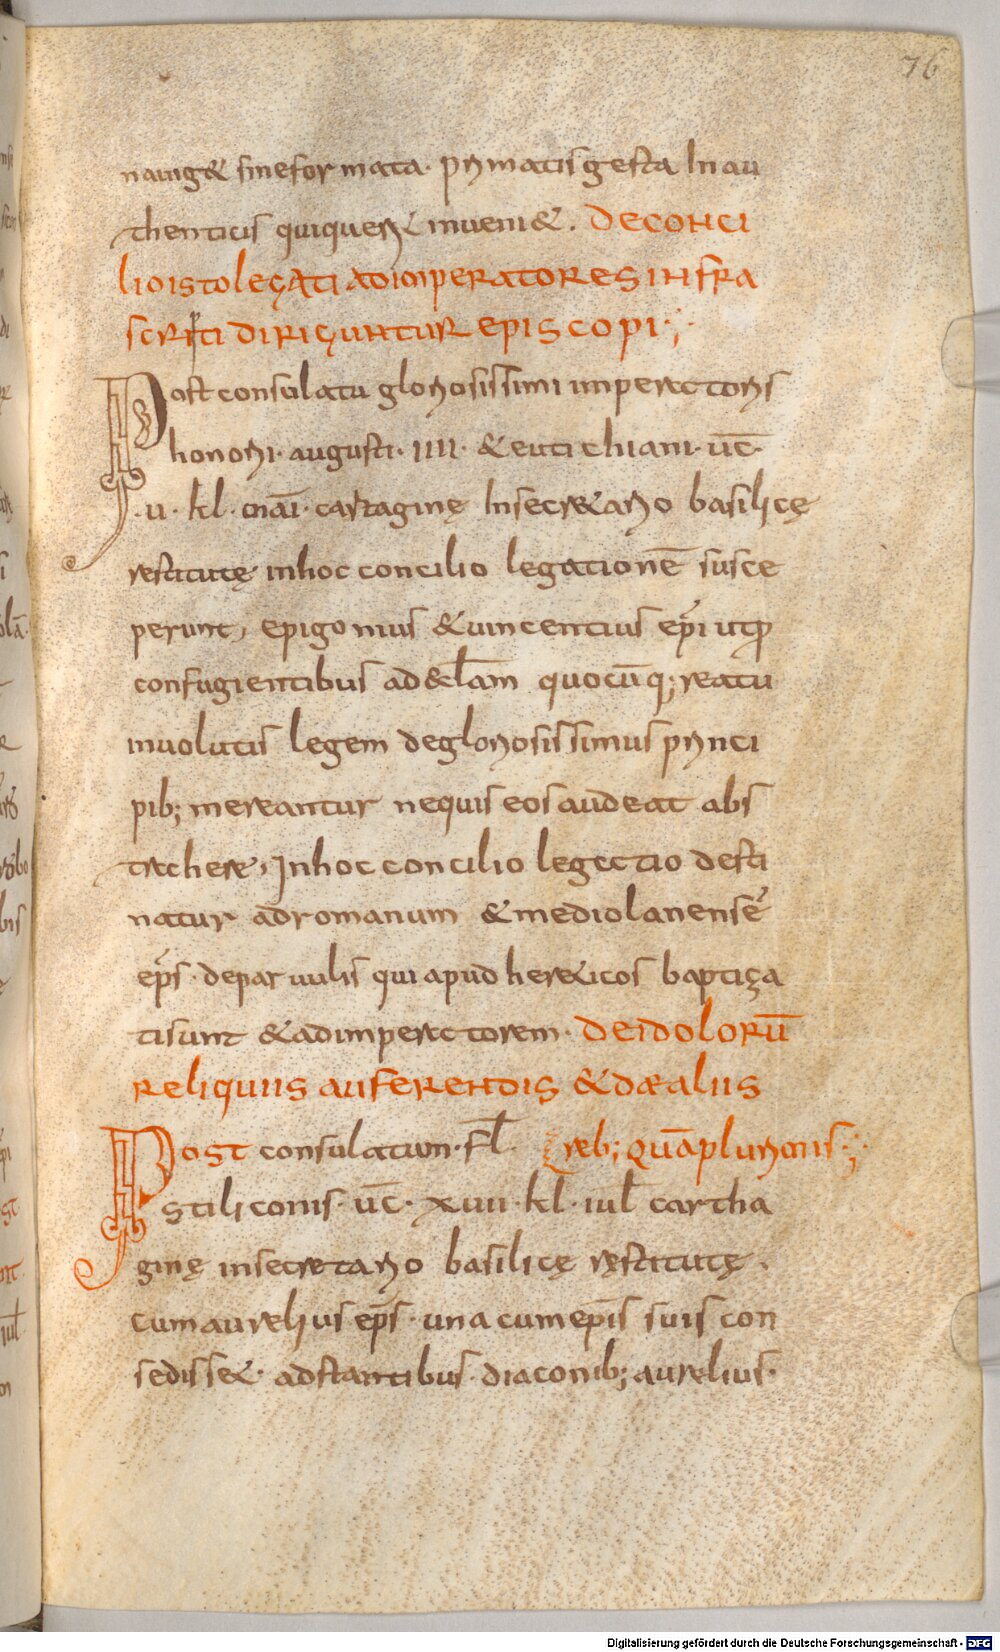 76
nauig& sineformata· primatis gesta In au
thenticis quiquer& inueni&. De conci
lio isto legati ad imperatores infra
scripti diriguntur episcopi·;·
Post consulatu gloriosissimi imperatoris
honorii· augusti· IIII· &eutichiani· uc̄·
·u· kl· mai· cartaginę Insecr&ario basilicę
restitutę inhoc concilio legationē susce
perunt, epigonius &uincentius epi ut ꝓ
confugientibus ad&cl̄am quocūq; reatu
inuolutis legem degloriosissimus princi
pib; mereantur nequis eos audeat abs
trahere, Inhoc concilio legatio desti
natur adromanum &mediolanensē
ep̄s· deparuulis qui apud her&icos baptiza
tisunt &adimperatorem· De idolorū
reliquiis auferendis &dealiis
reb; quā plurimis·;·
Post consulatum· fl·
stiliconis· uc̄· xuii· kl· iul cartha
ginę insecretario basilicę restitutę·
cum aurelius ep̄s· una cum ep̄is suis con
sediss&· adstantibus· diaconib; aurelius·
Digitalisierung gefördert durch die Deutsche Forschungsgemeinschaft - DFG